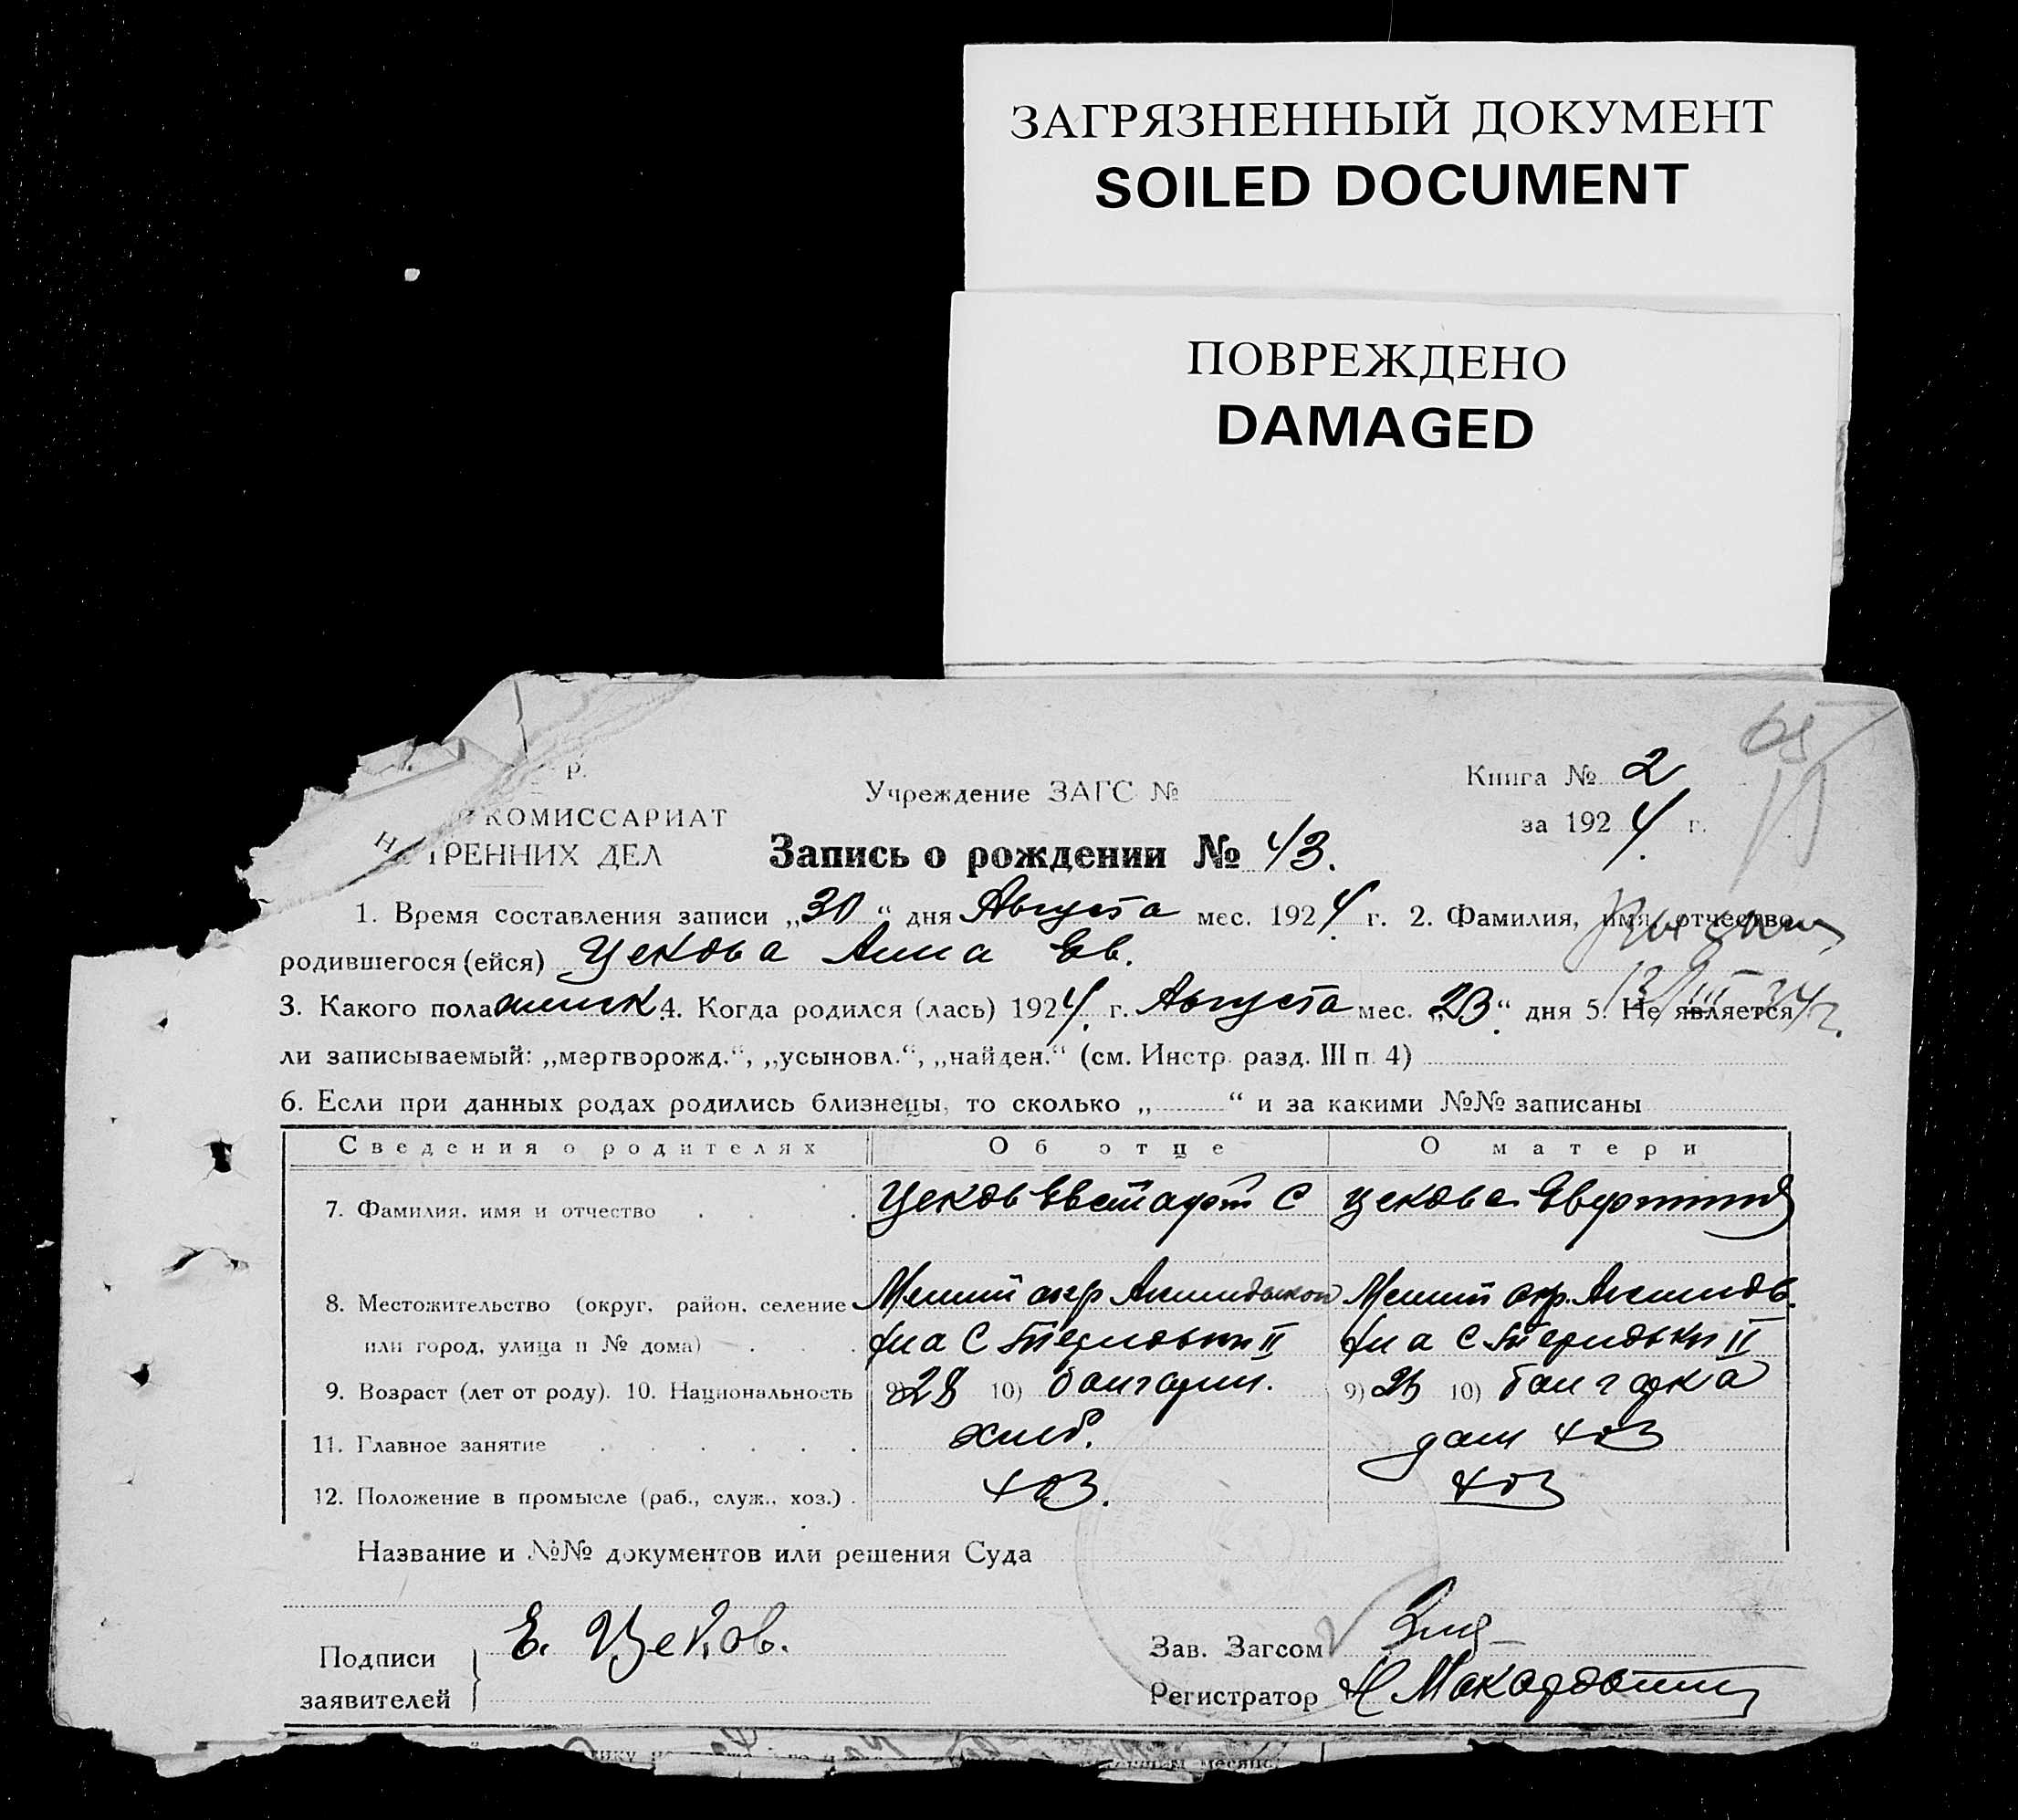 ЗАГРЯЗНЕННЫЙ ДОКУМЕНТ
SOILED DOCUMENT
ПОВРЕЖДЕНО
DAMAGED
65
Р.
КОМИССАРИАТ
ТРЕННИХ ДЕЛ
Учреждение ЗАГС №
Книга № 2
за 1924 г.
Запись о рождении № 43.
1. Время составления записи „30“ дня Августа мес. 1924 г. 2. Фамилия, имя, отчество
родившегося (ейся) Цекова Анна Ев.
3. Какого пола 4. Когда родился (лась) 1924 г. Августа мес. „23“ дня 5. Не является
ли записываемый: „мертворожд.“, „усыновл.“, „найден.“ (см. Инстр. разд. III п. 4)
6. Если при данных родах родились близнецы, то сколько „ “ и за какими №№ записаны
Сведения о родителях Об отце О матери
7. Фамилия, имя и отчество Цеков Евстафий С Цекова
8. Местожительство (округ, район, селение
или город, улица и № дома) II II
9. Возраст (лет от роду). 10. Национальность 9) 28 10) болгарин. 9) 25 10) болгарка
11. Главное занятие хлеб. дом хоз
12. Положение в промысле (раб., служ., хоз.) хоз. хоз
Название и №№ документов или решения Суда
Подписи
заявителей
Е. Цеков.
Зав. Загсом
Регистратор